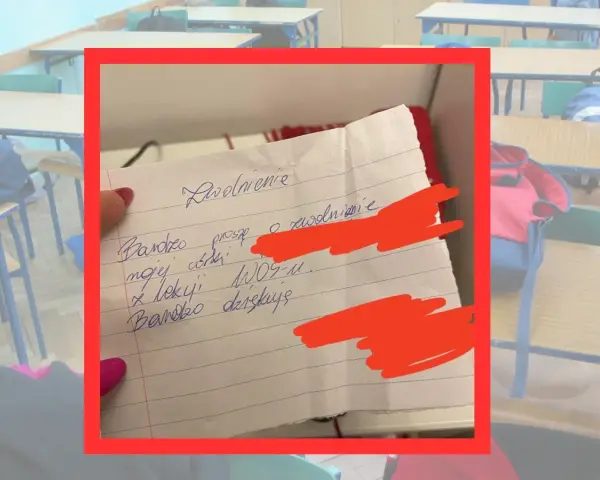 Zwolnienie
Bardzo proszę o zwolnienie
mojej córki
z lekcji WOS-u.
Bardzo dziękuję